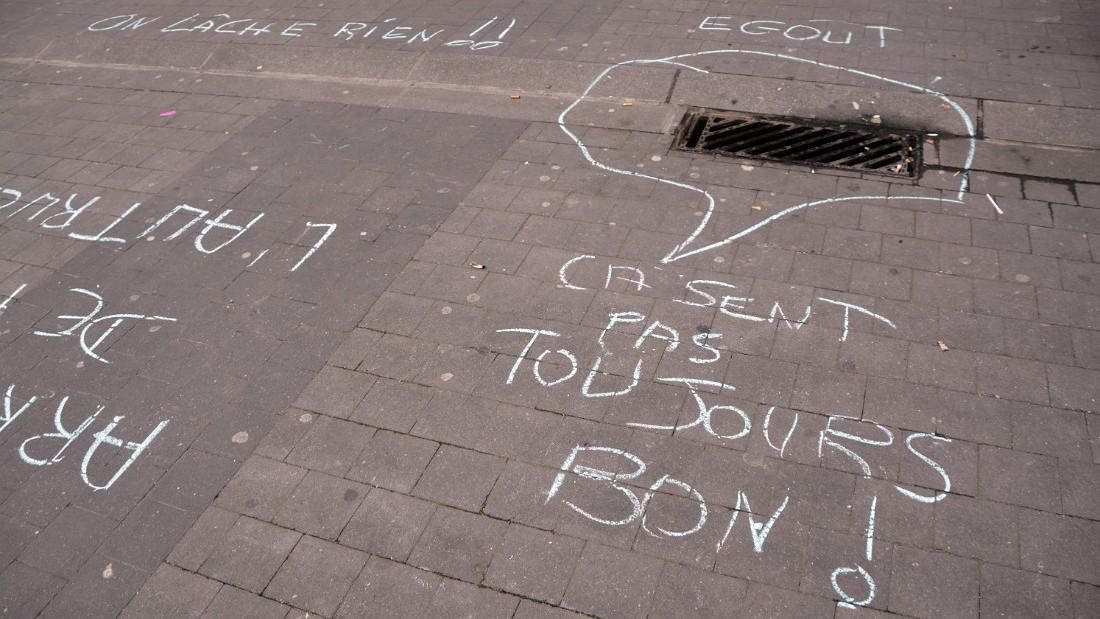 ON LÂCHE RIEN !!
EGOUT
CA SENT
PAS
TOUJOURS
BON !
ARR
DE
L'AUTRUC